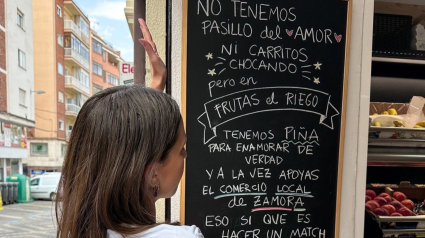 NO TENEMOS
PASILLO del AMOR
NI CARRITOS
CHOCANDO
pero en
FRUTAS el RIEGO
TENEMOS PIÑA
PARA ENAMORAR DE
VERDAD
Y A LA VEZ APOYAS
EL COMERCIO LOCAL
DE ZAMORA
ESO SI QUE ES
HACER UN MATCH